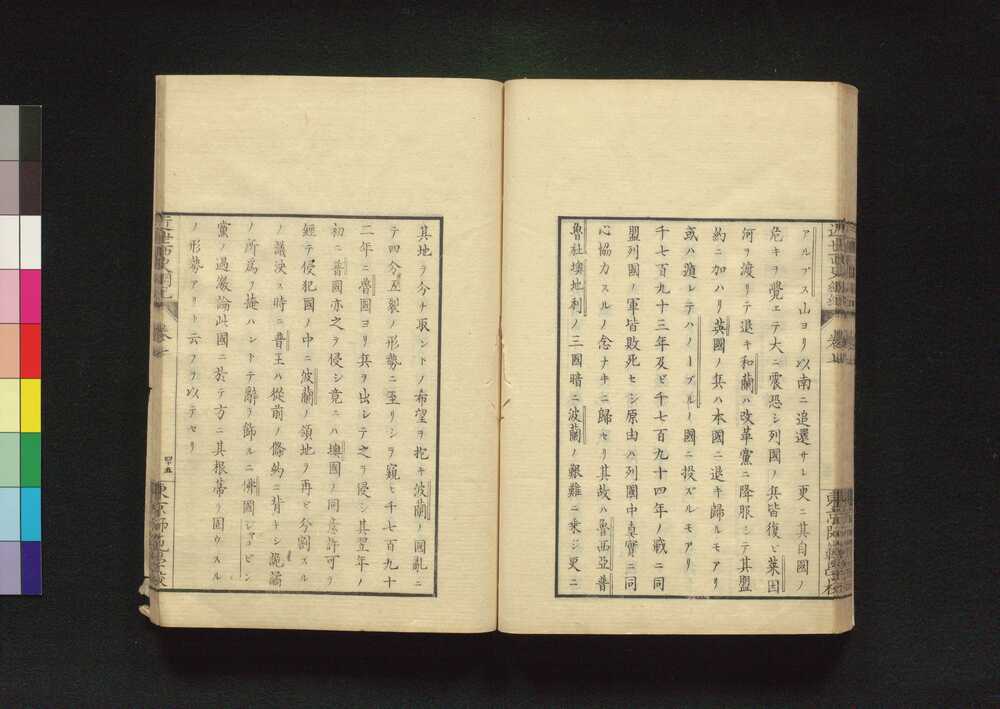 アルプス山ヨリ以南ニ追還サレ更ニ其自國ノ
危キヲ覺エテ大ニ震恐シ列國ノ兵皆復ビ萊因
河ヲ渡リテ退キ和蘭ハ改革黨ニ降服シテ其盟
約ニ加ハリ英國ノ兵ハ本國ニ退キ歸ルモアリ
或ハ遁レテハノーブルー國ニ投ズルモアリ
千七百九十三年及ヒ千七百九十四年ノ戰ニ同
盟列國ノ軍皆敗死セシ原由ハ列國中眞實ニ同
心協力スルノ念ナキニ歸セリ其故ハ魯西亞普
魯社墺地利ノ三國暗ニ波蘭ノ艱難ニ乘シ更ニ
其地ヲ分チ取ントノ希望ヲ抱キ波蘭ノ國亂ニ
テ四分五裂ノ形勢ニ至リシヲ窺ヒ千七百九十
二年ニ魯國ヨリ兵ヲ出シテ之ヲ侵シ其翌年ノ
初ニ普國亦之ヲ侵シ竟ニハ墺國ノ同意許可ヲ
經テ侵犯國ノ中ニ波蘭ノ領地ヲ再ビ分割スル
ノ議決ス時ニ普王ハ從前ノ條約ニ背キシ詭譎
ノ所爲ヲ掩ハントテ辭ヲ飾ルニ佛國ジャコビン
黨ノ過激論此國ニ於テ方ニ其根蔕ヲ固ウスル
ノ形勢アリト云フヲ以テセリ
卷一
四十五
東京師範學校